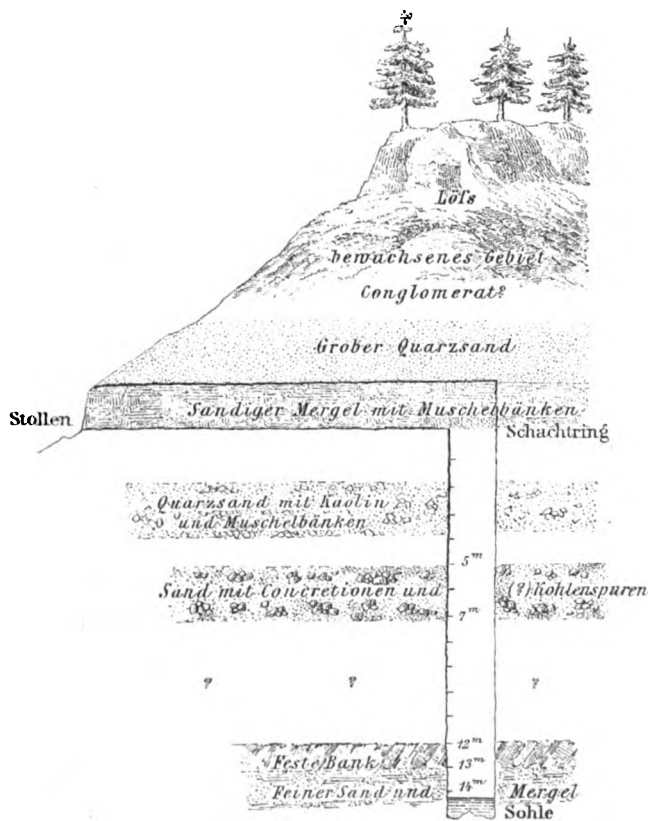 Löſs
bewachsenes Gebiet
Conglomerat?
Grober Quarzsand
Sandiger Mergel mit Muschelbänken
Stollen
Schachtring
Quarzsand mit Kaolin
und Muschelbänken
5 m
Sand mit Concretionen und (?) Kohlenspuren
7 m
? ? ?
12 m
Feste Bank
13 m
14 m
Feiner Sand und Mergel
Sohle